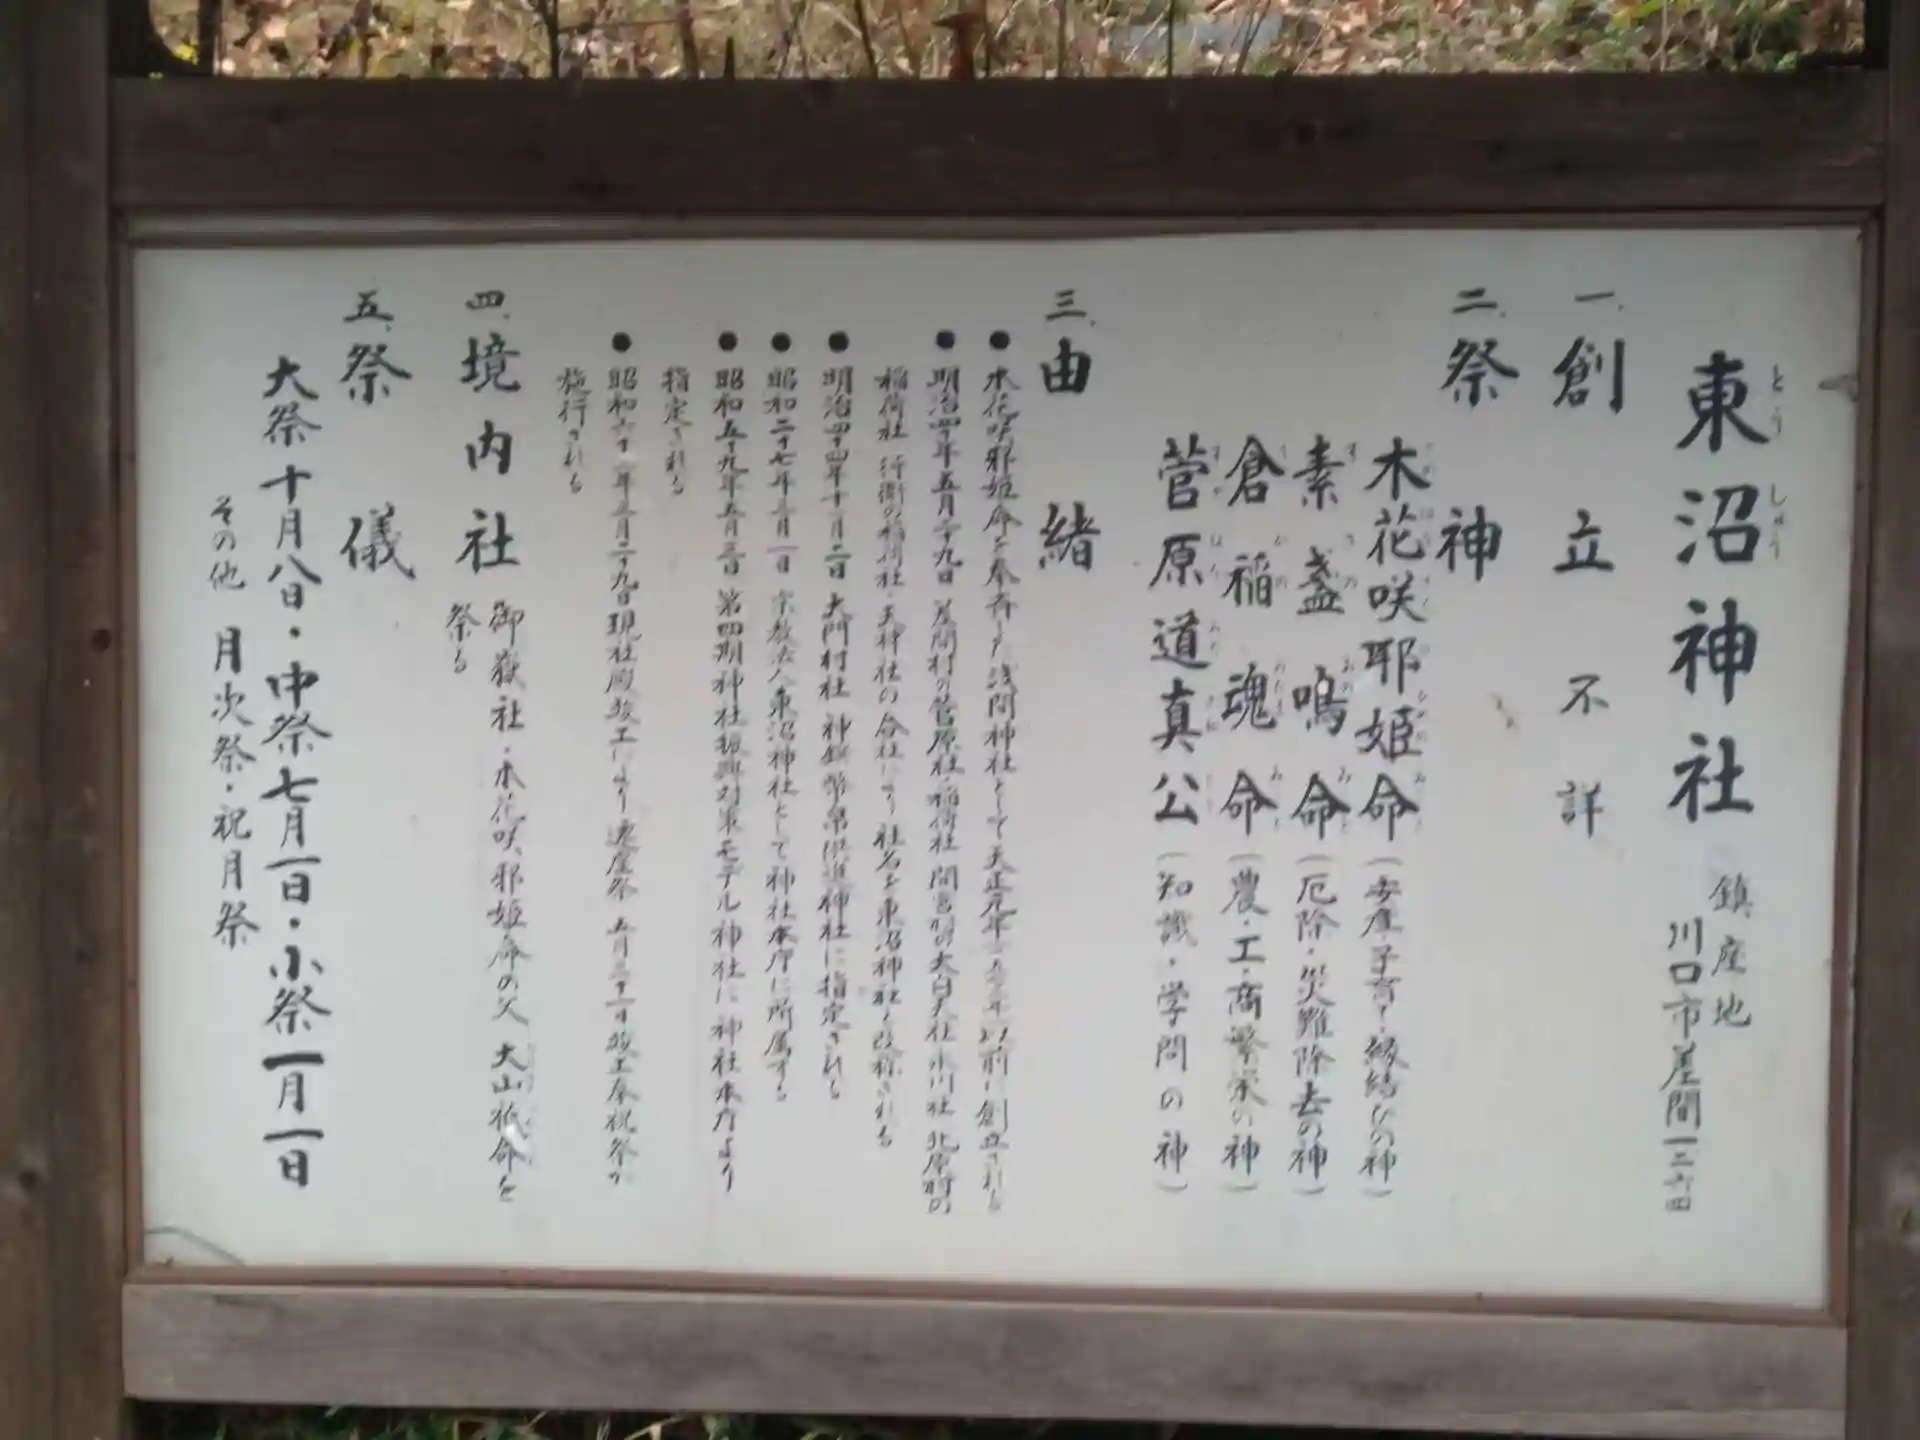 東沼神社
とうしょうじんじゃ
鎮座地
川口市差間一三六四
一、創立不詳
二、祭神
木花咲耶姫命(安産・子育て・縁結びの神)
素盞嗚命(厄除・災難除去の神)
倉稲魂命(農・工・商繁栄の神)
菅原道真公(知識・学問の神)
三、由緒
●木花咲耶姫命を奉斉した浅間神社として天正元年 以前に創立される
●明治四十年五月二十九日 差間村の菅原社・稲荷社 間宮村の太白天社・氷川社 北原村の
稲荷社 行衛の稲荷社・天神社の合社により社名を東沼神社と改称される
●明治四十四年十一月二日 大門村社 神饌幣帛供進神社に指定される
●昭和二十七年三月一日 宗教法人東沼神社として神社本庁に所属する
●昭和五十九年五月 第四期神社振興対策モデル神社に 神社本庁より
指定される
●昭和六十 年三月二十九日現社殿竣工により遷座祭 五月三十一日竣工奉祝祭が
施行される
四、境内社 御嶽社・木花咲耶姫命の父 大山祇命を
祭る
五、祭儀
大祭十月八日・中祭七月一日・小祭一月一日
その他 月次祭・祝月祭